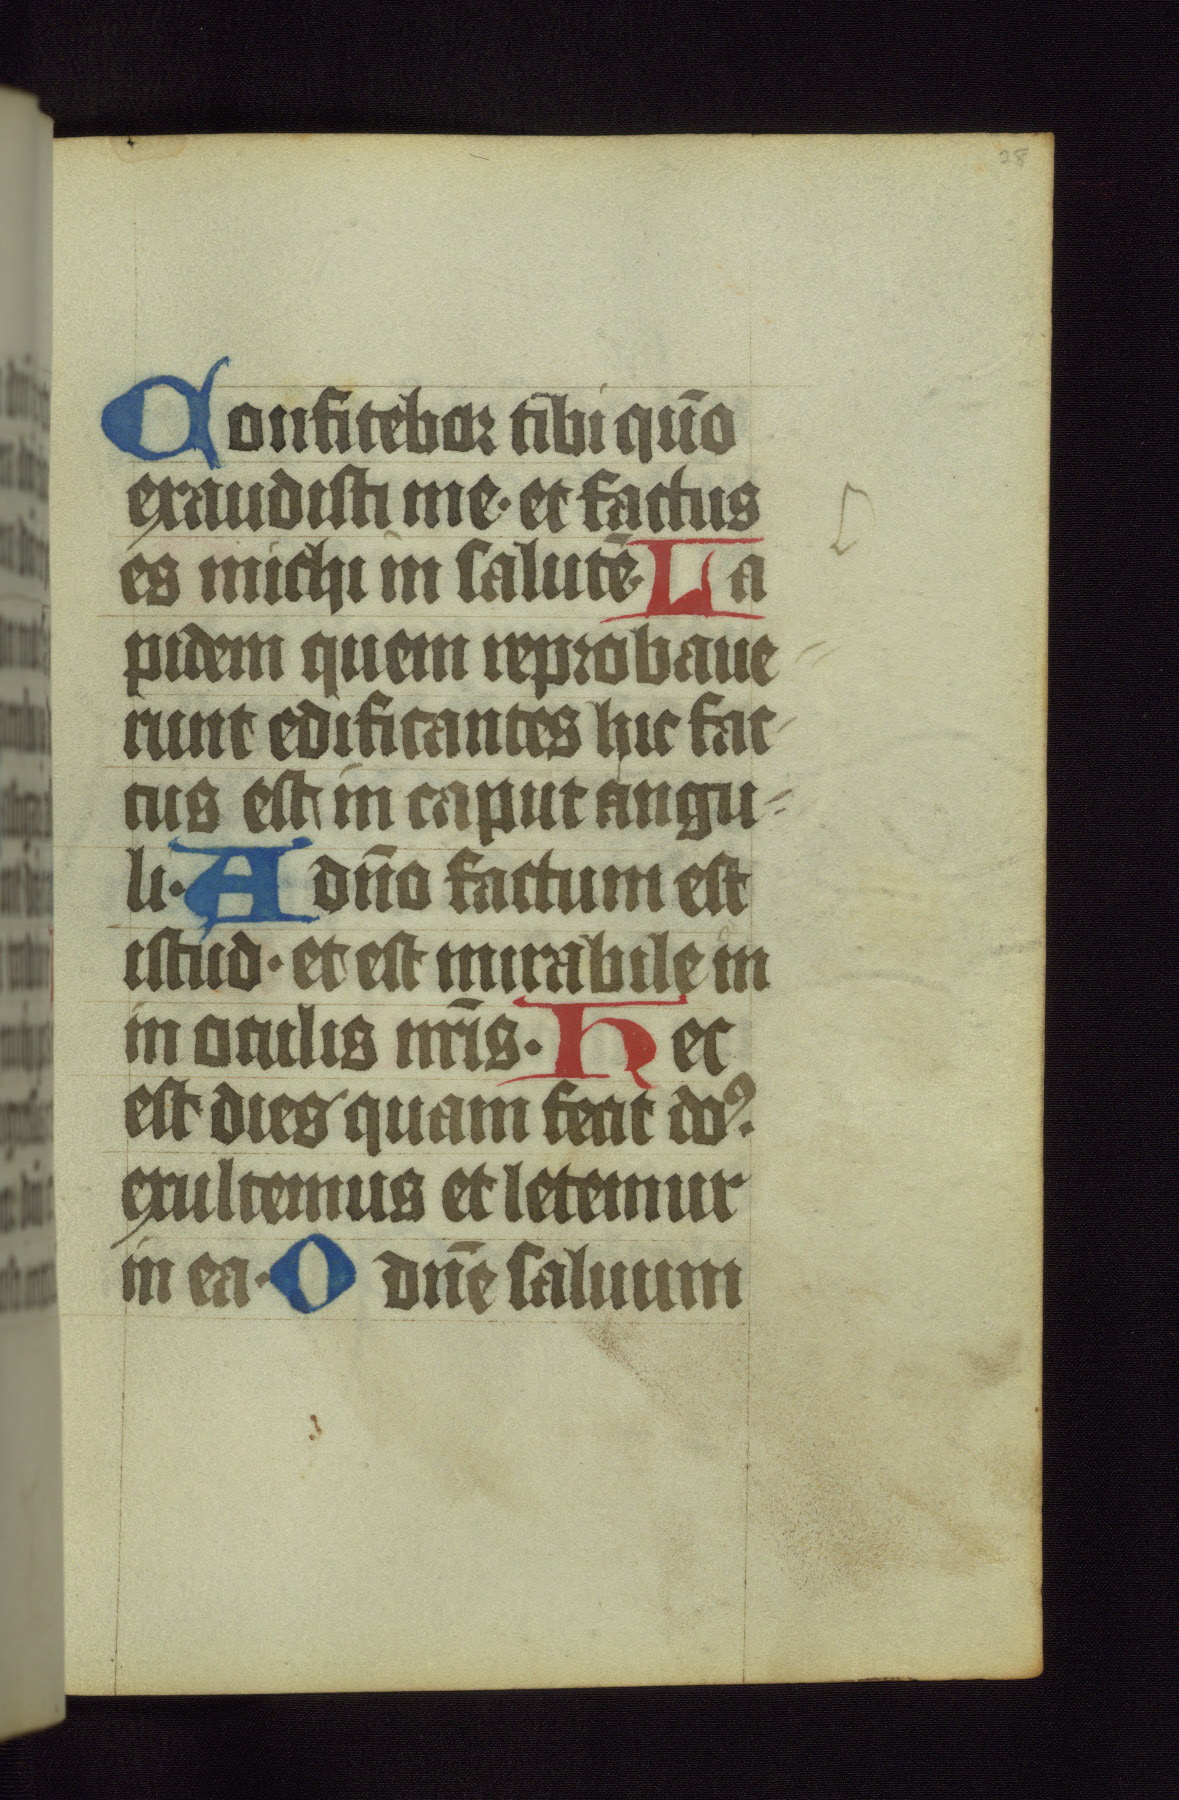 28
Confitebor tibi qūo
exaudisti me · et factus
es michi in salutē · La
pidem quem reprobaue
runt edificantes hic fac
tus est in caput angu
li · A dn̄o factum est
istud · et est mirabile in
in oculis nr̄is · Hec
est dies quam fecit do᷒ ·
exultemus et letemur
in ea · O dn̄e saluum